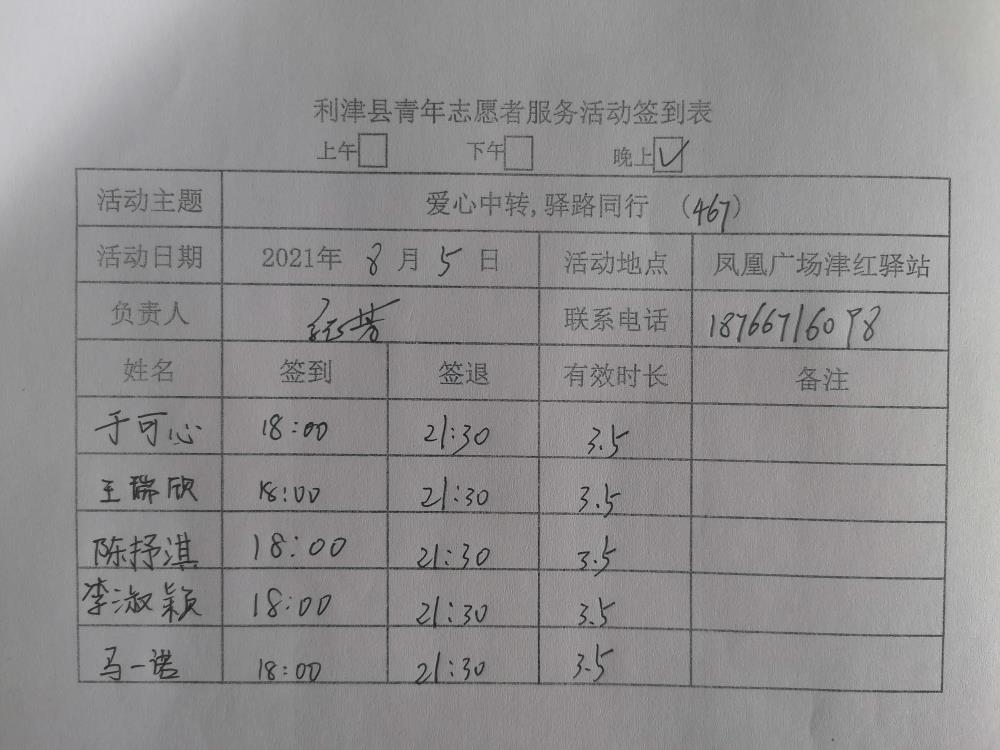 利津县青年志愿者服务活动签到表
上午 下午 晚上 ✓
活动主题 爱心中转,驿路同行 (467)
活动日期 2021年 8月 5日 活动地点 凤凰广场津红驿站
负责人 联系电话
姓名 签到 签退 有效时长 备注
于可心 18:00 21:30 3.5
王瑞欣 18:00 21:30 3.5
陈抒淇 18:00 21:30 3.5
李淑颖 18:00 21:30 3.5
马一诺 18:00 21:30 3.5